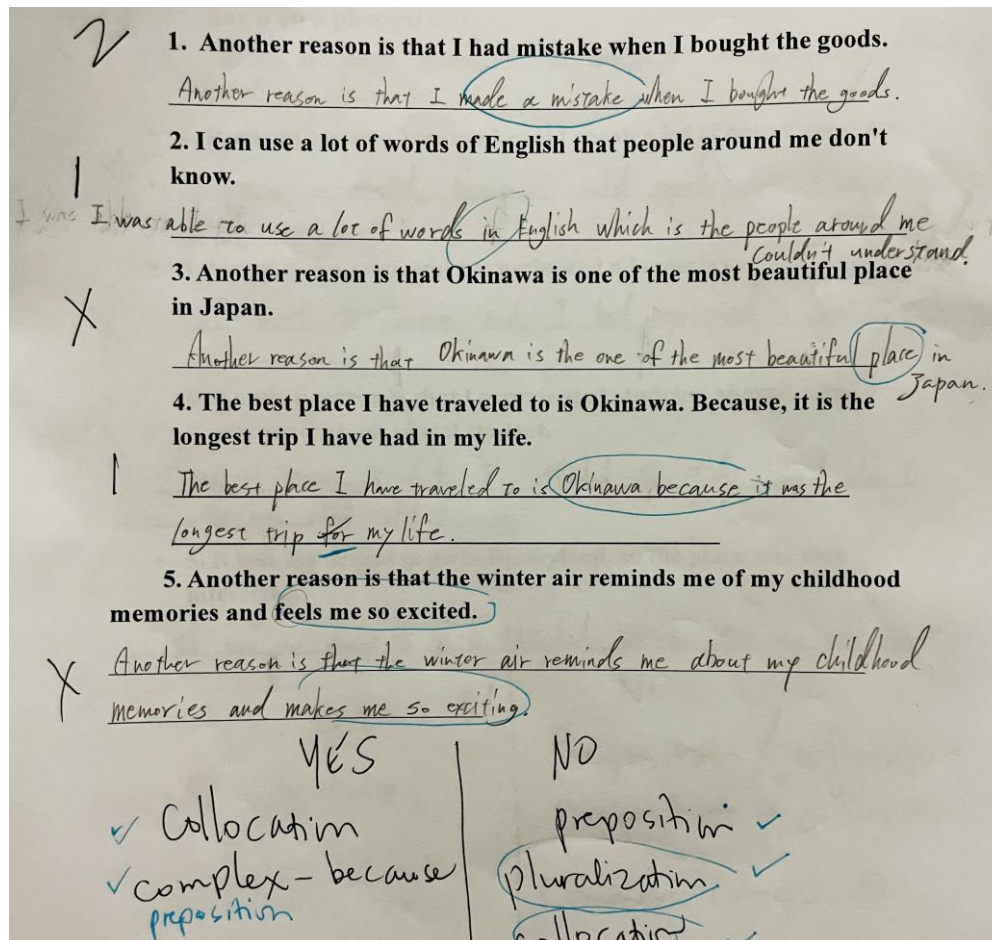 2 1. Another reason is that I had mistake when I bought the goods.
Another reason is that I made a mistake when I bought the goods.
2. I can use a lot of words of English that people around me don't
1 know.
I was I was able to use a lot of words in English which is the people around me
couldn't understand.
3. Another reason is that Okinawa is one of the most beautiful place
X in Japan.
Another reason is that Okinawa is the one of the most beautiful place in
Japan.
4. The best place I have traveled to is Okinawa. Because, it is the
longest trip I have had in my life.
1 The best place I have traveled to is Okinawa because it was the
longest trip for my life.
5. Another reason is that the winter air reminds me of my childhood
memories and feels me so excited.
X Another reason is that the winter air reminds me about my childhood
memories and makes me so exciting.
YES NO
✓ Collocation preposition ✓
✓ complex - because pluralization ✓
preposition collocation